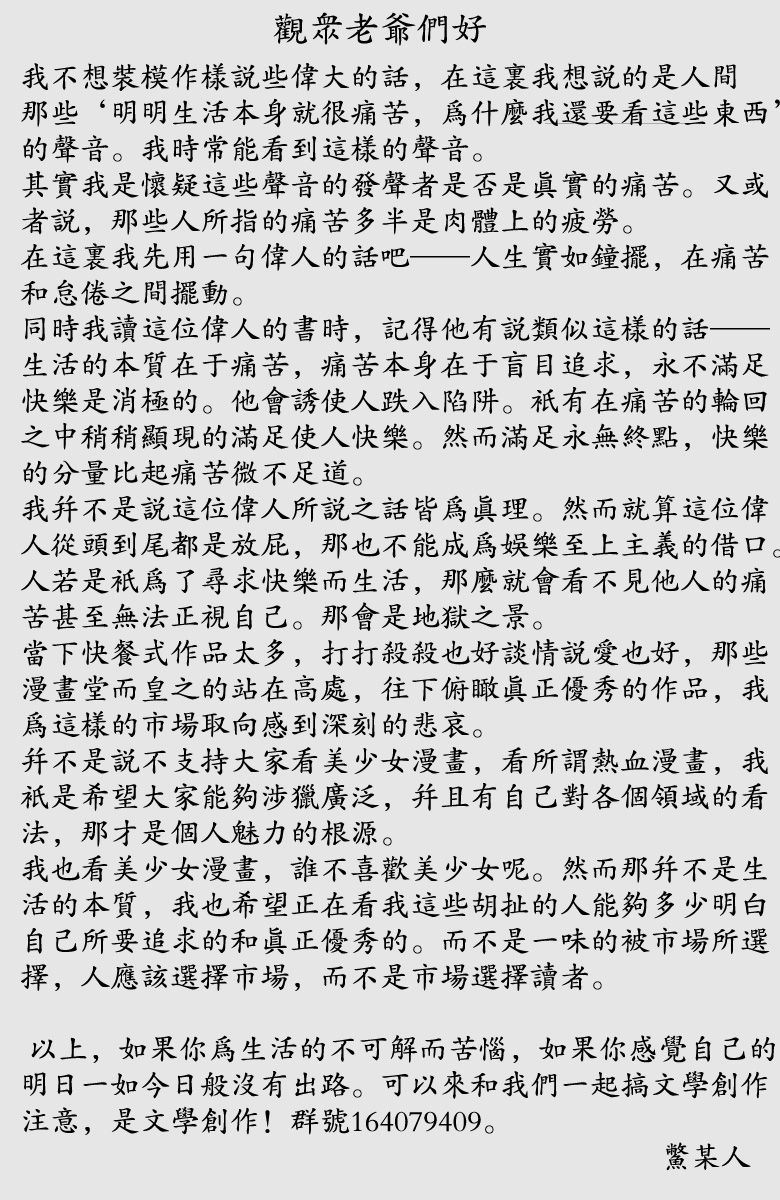 觀衆老爺們好
我不想裝模作樣説些偉大的話，在這裏我想説的是人間
那些‘明明生活本身就很痛苦，爲什麼我還要看這些東西’
的聲音。我時常能看到這樣的聲音。
其實我是懷疑這些聲音的發聲者是否是眞實的痛苦。又或
者説，那些人所指的痛苦多半是肉體上的疲勞。
在這裏我先用一句偉人的話吧——人生實如鐘擺，在痛苦
和怠倦之間擺動。
同時我讀這位偉人的書時，記得他有説類似這樣的話——
生活的本質在于痛苦，痛苦本身在于盲目追求，永不滿足
快樂是消極的。他會誘使人跌入陷阱。衹有在痛苦的輪回
之中稍稍顯現的滿足使人快樂。然而滿足永無終點，快樂
的分量比起痛苦微不足道。
我幷不是説這位偉人所説之話皆爲眞理。然而就算這位偉
人從頭到尾都是放屁，那也不能成爲娛樂至上主義的借口。
人若是衹爲了尋求快樂而生活，那麼就會看不見他人的痛
苦甚至無法正視自己。那會是地獄之景。
當下快餐式作品太多，打打殺殺也好談情説愛也好，那些
漫畫堂而皇之的站在高處，往下俯瞰眞正優秀的作品，我
爲這樣的市場取向感到深刻的悲哀。
幷不是説不支持大家看美少女漫畫，看所謂熱血漫畫，我
衹是希望大家能夠涉獵廣泛，幷且有自己對各個領域的看
法，那才是個人魅力的根源。
我也看美少女漫畫，誰不喜歡美少女呢。然而那幷不是生
活的本質，我也希望正在看我這些胡扯的人能夠多少明白
自己所要追求的和眞正優秀的。而不是一味的被市場所選
擇，人應該選擇市場，而不是市場選擇讀者。
以上，如果你爲生活的不可解而苦惱，如果你感覺自己的
明日一如今日般沒有出路。可以來和我們一起搞文學創作
注意，是文學創作！群號164079409。
鱉某人